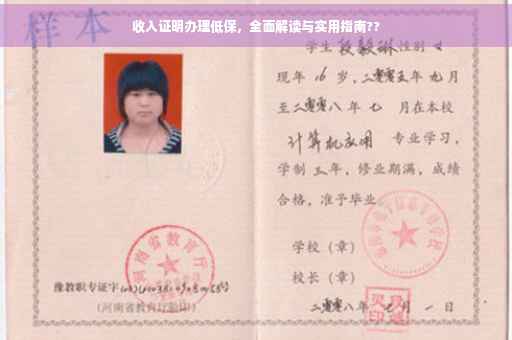 收入证明办理低保，全面解读与实用指南??
样本
学生段毅琳性别女
现年16岁，二零零五年九月
至二零零八年七 月在本校
计算机应用 专业学习，
学制三年，修业期满，成绩
合格，准予毕业
学校（章）
校长（章）
二零零八年 月一日
河南省教育厅
豫教职专证字
（河南省教育厅验印）